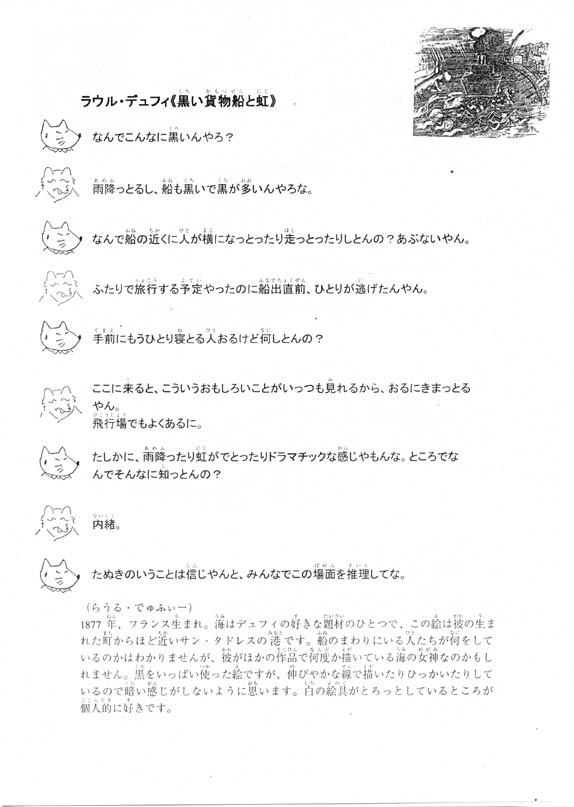 ラウル・デュフィ《黒い貨物船と虹》
なんでこんなに黒いんやろ？
雨降っとるし、船も黒いで黒が多いんやろな。
なんで船の近くに人が横になっとったり走っとったりしとんの？あぶないやん。
ふたりで旅行する予定やったのに船出直前、ひとりが逃げたんやん。
手前にもうひとり寝とる人おるけど何しとんの？
ここに来ると、こういうおもしろいことがいっつも見れるから、おるにきまっとる
やん。
飛行場でもよくあるに。
たしかに、雨降ったり虹がでとったりドラマチックな感じやもんな。ところでな
んでそんなに知っとんの？
内緒。
たぬきのいうことは信じやんと、みんなでこの場面を推理してな。
（らうる・でゅふぃー）
1877 年、フランス生まれ。海はデュフィの好きな題材のひとつで、この絵は彼の生ま
れた町からほど近いサン・タドレスの港です。船のまわりにいる人たちが何をして
いるのかはわかりませんが、彼がほかの作品で何度か描いている海の女神なのかもし
れません。黒をいっぱい使った絵ですが、伸びやかな線で描いたりひっかいたりして
いるので暗い感じがしないように思います。白の絵具がとろっとしているところが
個人的に好きです。